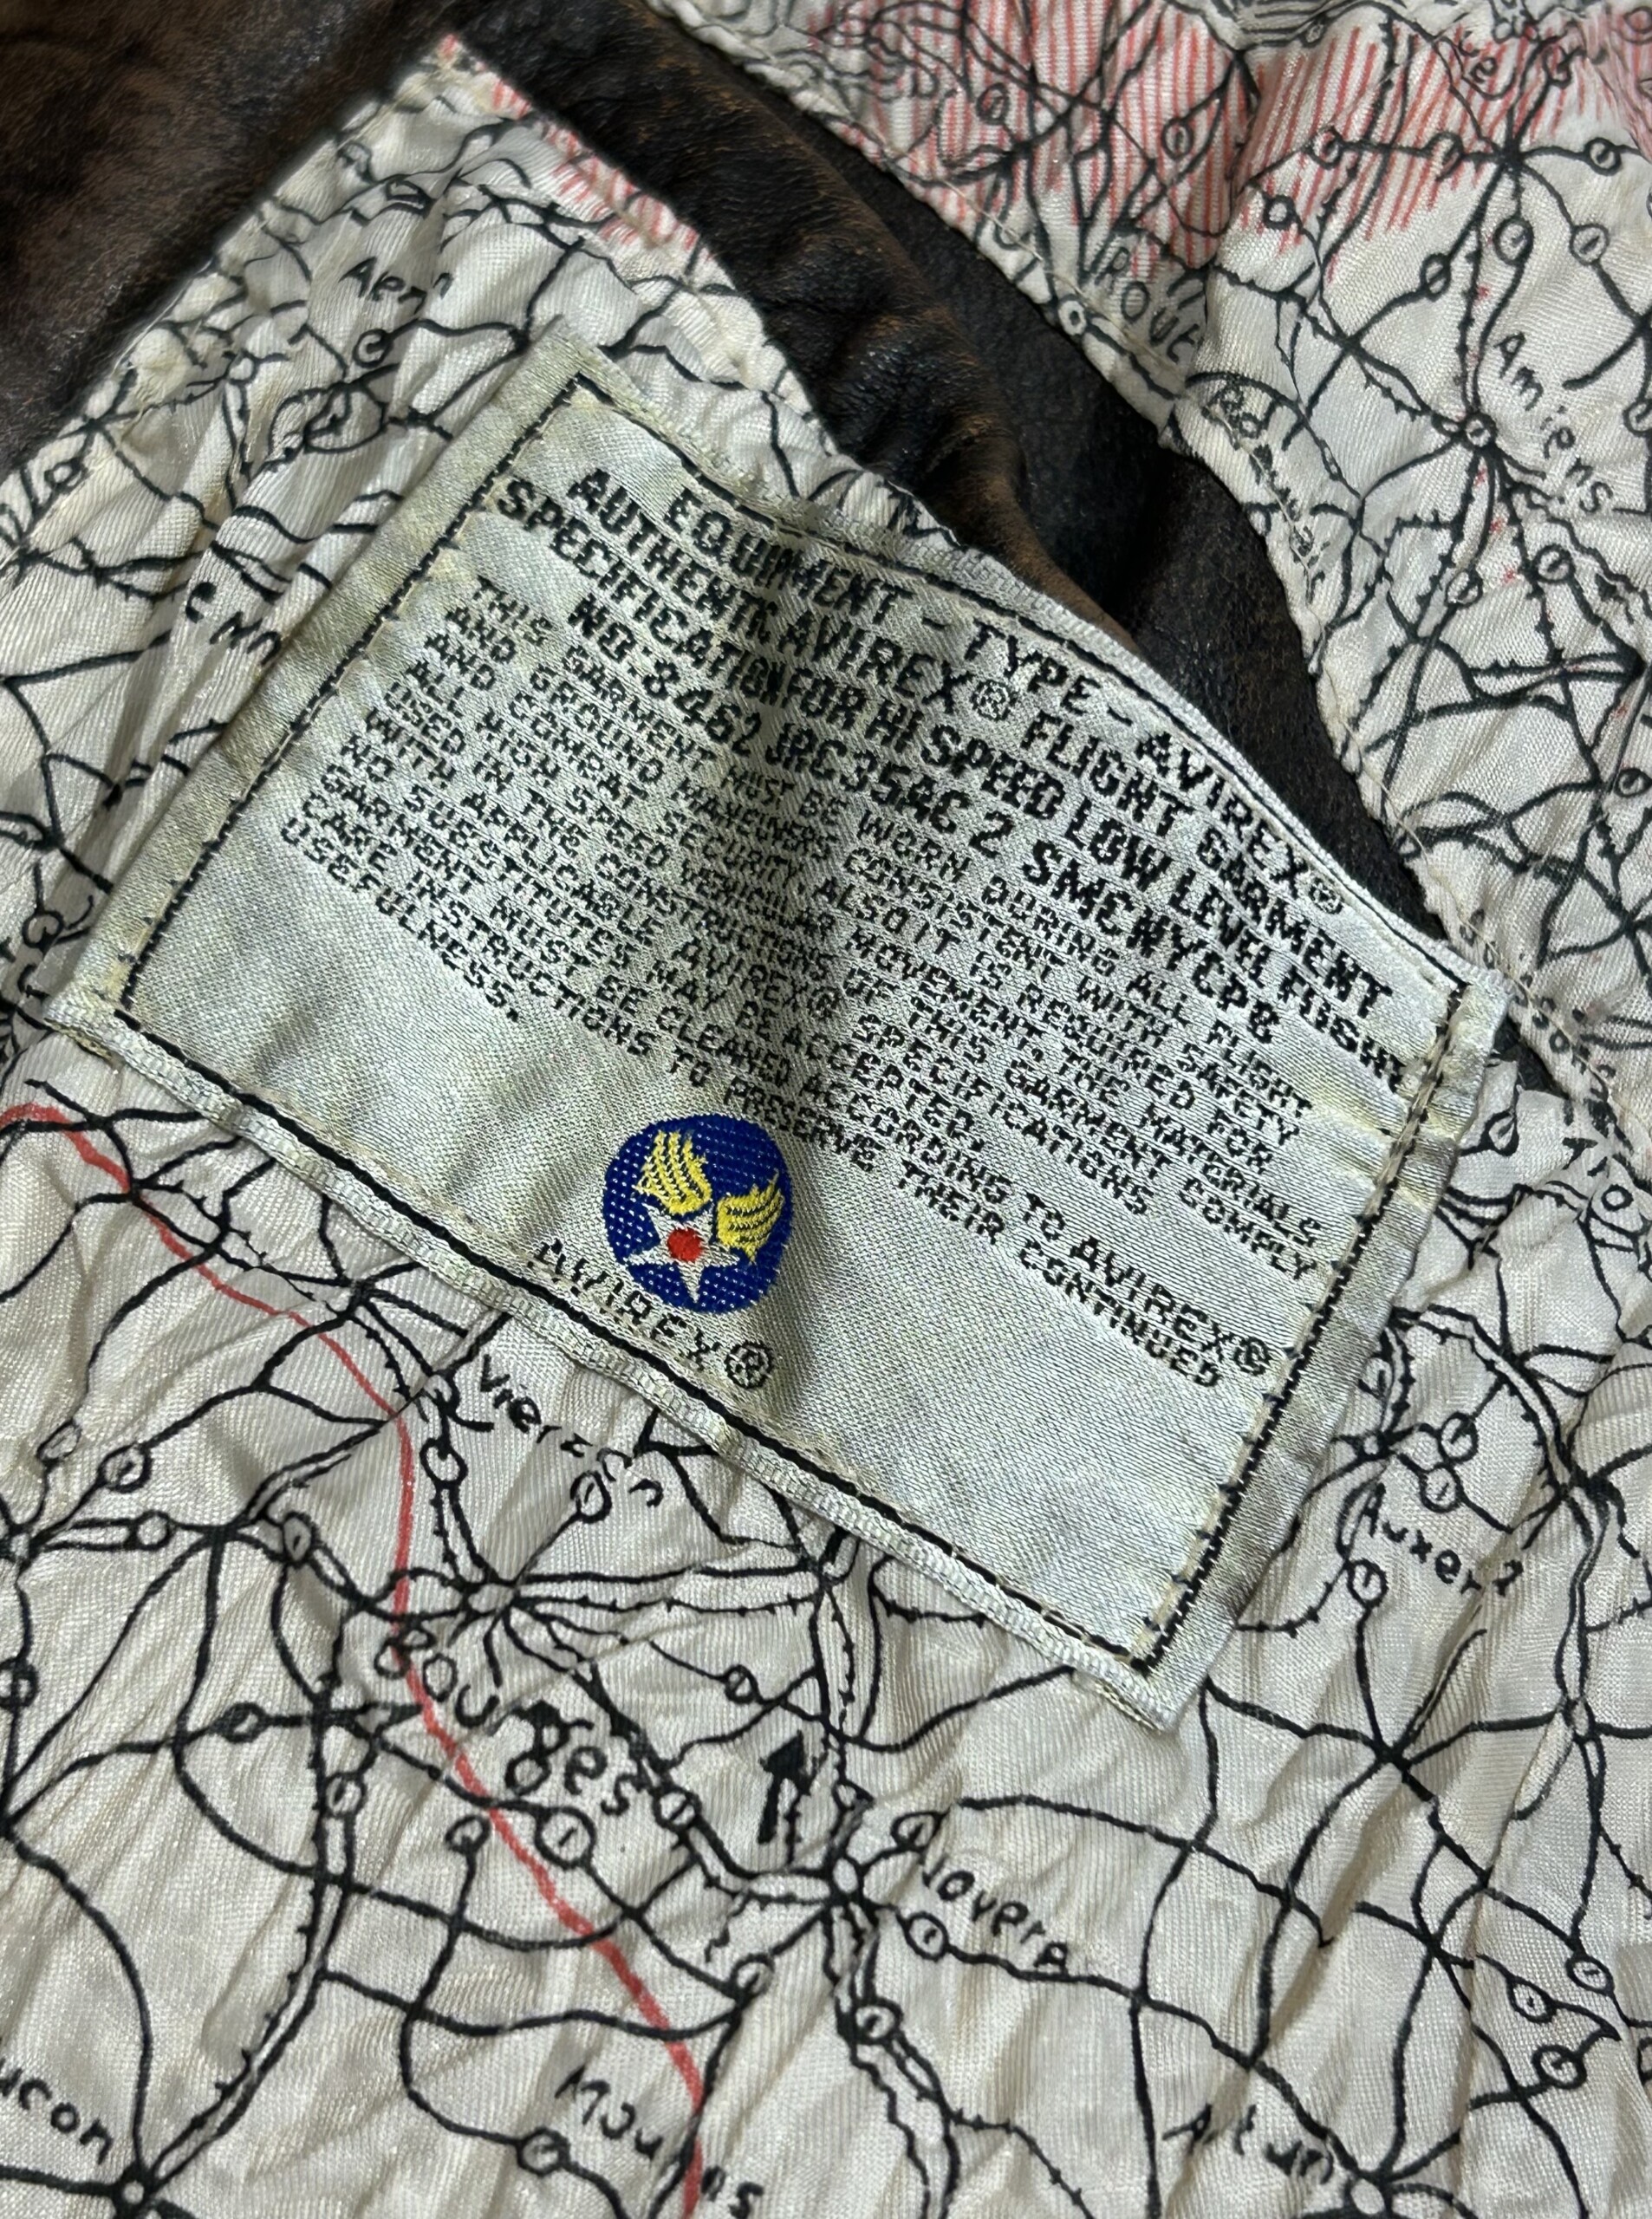 EQUIPMENT - TYPE - AVIREX®
AUTHENTIC AVIREX® FLIGHT GARMENT
SPECIFICATION FOR HI SPEED LOW LEVEL FLIGHT
NO-8462 JRC35AE 2 SMCNYCP8
THIS GARMENT MUST BE WORN DURING ALL FLIGHT
AND GROUND MANEUVERS CONSISTENT WITH SAFETY
AND COMBAT SECURITY. ALSO IT IS REQUIRED FOR
ALL HIGH SPEED VEHICULAR MOVEMENT. THE MATERIALS
USED IN THE CONSTRUCTIONS OF THIS GARMENT COMPLY
WITH APPLICABLE AVIREX® SPECIFICATIONS
NO SUBSTITUTES MAY BE ACCEPTED.
GARMENT MUST BE CLEANED ACCORDING TO AVIREX®
CARE INSTRUCTIONS TO PRESERVE THEIR CONTINUED
USEFULNESS.
AVIREX®
Amiens
Vierzon
Bourges
Auxer